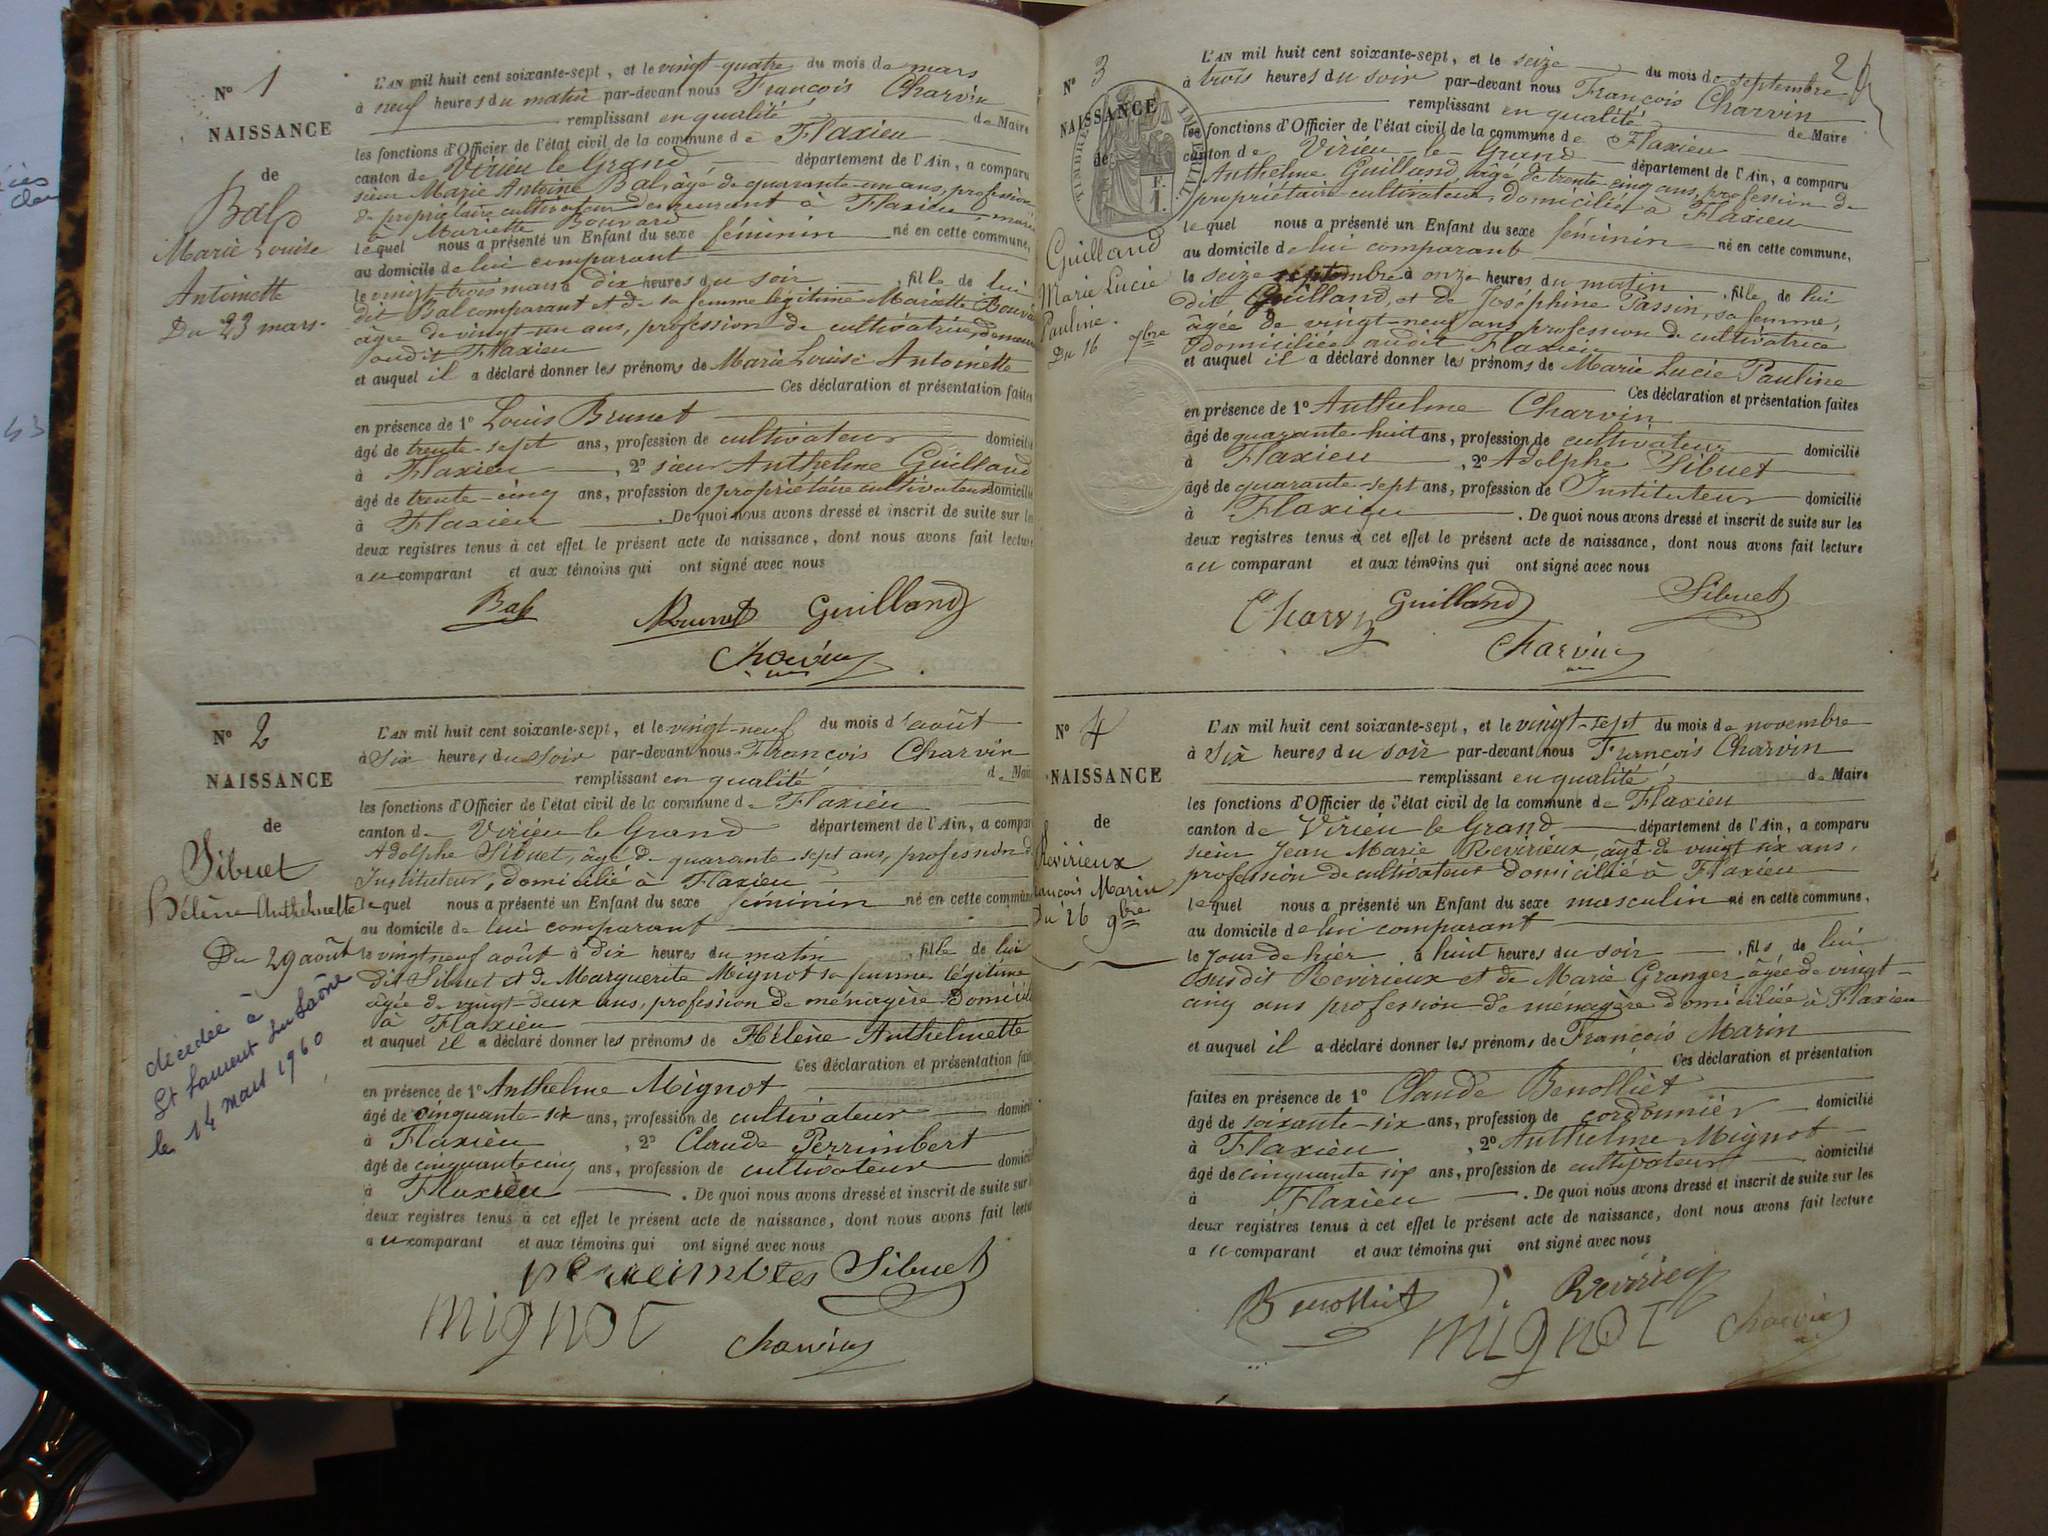 N° 1
NAISSANCE
de
Bal
Marie Louise
Antoinette
Du 23 mars.
L'AN mil huit cent soixante-sept, et le vingt-quatre du mois de mars
à neuf heures du matin par-devant nous François Charvin
remplissant en qualité de Maire
les fonctions d'Officier de l'état civil de la commune de Flaxieu
canton de Virieu le Grand département de l'Ain, a comparu
sieur Marie Antoine Bal, âgé de quarante-un ans, profession
de propriétaire cultivateur demeurant à Flaxieu, marié
à Mariette Bouvard
lequel nous a présenté un Enfant du sexe féminin né en cette commune,
au domicile de lui comparant
le vingt trois mars à dix heures du soir, fille de lui
dit Bal comparant et de sa femme légitime Mariette Bouvard
âgée de vingt un ans, profession de cultivatrice, demeurant
audit Flaxieu
et auquel il a déclaré donner les prénoms de Marie Louise Antoinette
Ces déclaration et présentation faites
en présence de 1° Louis Brunet
âgé de trente-sept ans, profession de cultivateur domicilié
à Flaxieu, 2° sieur Anthelme Guilland
âgé de trente-cinq ans, profession de propriétaire cultivateur domicilié
à Flaxieu. De quoi nous avons dressé et inscrit de suite sur les
deux registres tenus à cet effet le présent acte de naissance, dont nous avons fait lecture
au comparant et aux témoins qui ont signé avec nous
Bal Brunet Guilland
Charvin
N° 2
NAISSANCE
de
Sibuet
Hélène Anthelmette
Du 29 août
décédée à
St Laurent sur Saône
le 14 mars 1960
L'AN mil huit cent soixante-sept, et le vingt-neuf du mois d'août
à Six heures du soir par-devant nous François Charvin
remplissant en qualité de Maire
les fonctions d'Officier de l'état civil de la commune de Flaxieu
canton de Virieu le Grand département de l'Ain, a comparu
Adolphe Sibuet, âgé de quarante sept ans, profession d
Instituteur, domicilié à Flaxieu
lequel nous a présenté un Enfant du sexe féminin né en cette commune
au domicile de lui comparant
le vingt neuf août à dix heures du matin, fille de lui
dit Sibuet et de Marguerite Mignot sa femme légitime
âgée de vingt-deux ans, profession de ménagère Domicil
à Flaxieu
et auquel il a déclaré donner les prénoms de Hélène Anthelmette
Ces déclaration et présentation fait
en présence de 1° Anthelme Mignot
âgé de cinquante-six ans, profession de cultivateur domicil
à Flaxieu, 2° Claude Perrimbert
âgé de cinquante cinq ans, profession de cultivateur domici
à Flaxieu. De quoi nous avons dressé et inscrit de suite sur l
deux registres tenus à cet effet le présent acte de naissance, dont nous avons fait lectur
au comparant et aux témoins qui ont signé avec nous
Sibuet
mignot Charvin
2
N° 3
NAISSANCE
de
TIMBRE IMPERIAL
Guilland
Marie Lucie
Pauline.
Du 16 7bre
L'AN mil huit cent soixante-sept, et le seize du mois de septembre
à trois heures du soir par-devant nous François Charvin
remplissant en qualité de Maire
les fonctions d'Officier de l'état civil de la commune de Flaxieu
canton de Virieu-le-Grand département de l'Ain, a comparu
Anthelme Guilland, âgé de trente-cinq ans, profession de
propriétaire cultivateur, domicilié à Flaxieu
lequel nous a présenté un Enfant du sexe féminin né en cette commune,
au domicile de lui comparant
le seize septembre à onze heures du matin, fille de lui
dit Guilland, et de Joséphine Passin, sa femme,
âgée de vingt-neuf ans profession de cultivatrice
domiciliée audit Flaxieu
et auquel il a déclaré donner les prénoms de Marie Lucie Pauline
Ces déclaration et présentation faites
en présence de 1° Anthelme Charvin
âgé de quarante-huit ans, profession de cultivateur domicilié
à Flaxieu, 2° Adolphe Sibuet
âgé de quarante-sept ans, profession de Instituteur domicilié
à Flaxieu. De quoi nous avons dressé et inscrit de suite sur les
deux registres tenus à cet effet le présent acte de naissance, dont nous avons fait lecture
au comparant et aux témoins qui ont signé avec nous
Charvin Guilland Sibuet
Charvin
N° 4
NAISSANCE
de
Revirieux
François Marin
Du 26 9bre
L'AN mil huit cent soixante-sept, et le vingt-sept du mois de novembre
à Six heures du soir par-devant nous François Charvin
remplissant en qualité de Maire
les fonctions d'Officier de l'état civil de la commune de Flaxieu
canton de Virieu le Grand département de l'Ain, a comparu
sieur Jean Marie Revirieux, âgé de vingt six ans,
profession de cultivateur domicilié à Flaxieu
lequel nous a présenté un Enfant du sexe masculin né en cette commune,
au domicile de lui comparant
le Jour de hier à huit heures du soir, fils de lui
susdit Revirieux et de Marie Granger âgée de vingt-
cinq ans profession de ménagère domiciliée à Flaxieu
et auquel il a déclaré donner les prénoms de François Marin
Ces déclaration et présentation
faites en présence de 1° Claude Benolliet
âgé de soixante-six ans, profession de cordonnier domicilié
à Flaxieu, 2° Anthelme Mignot
âgé de cinquante six ans, profession de cultivateur domicilié
à Flaxieu. De quoi nous avons dressé et inscrit de suite sur les
deux registres tenus à cet effet le présent acte de naissance, dont nous avons fait lecture
au comparant et aux témoins qui ont signé avec nous
Benolliet Revirieux
mignot Charvin